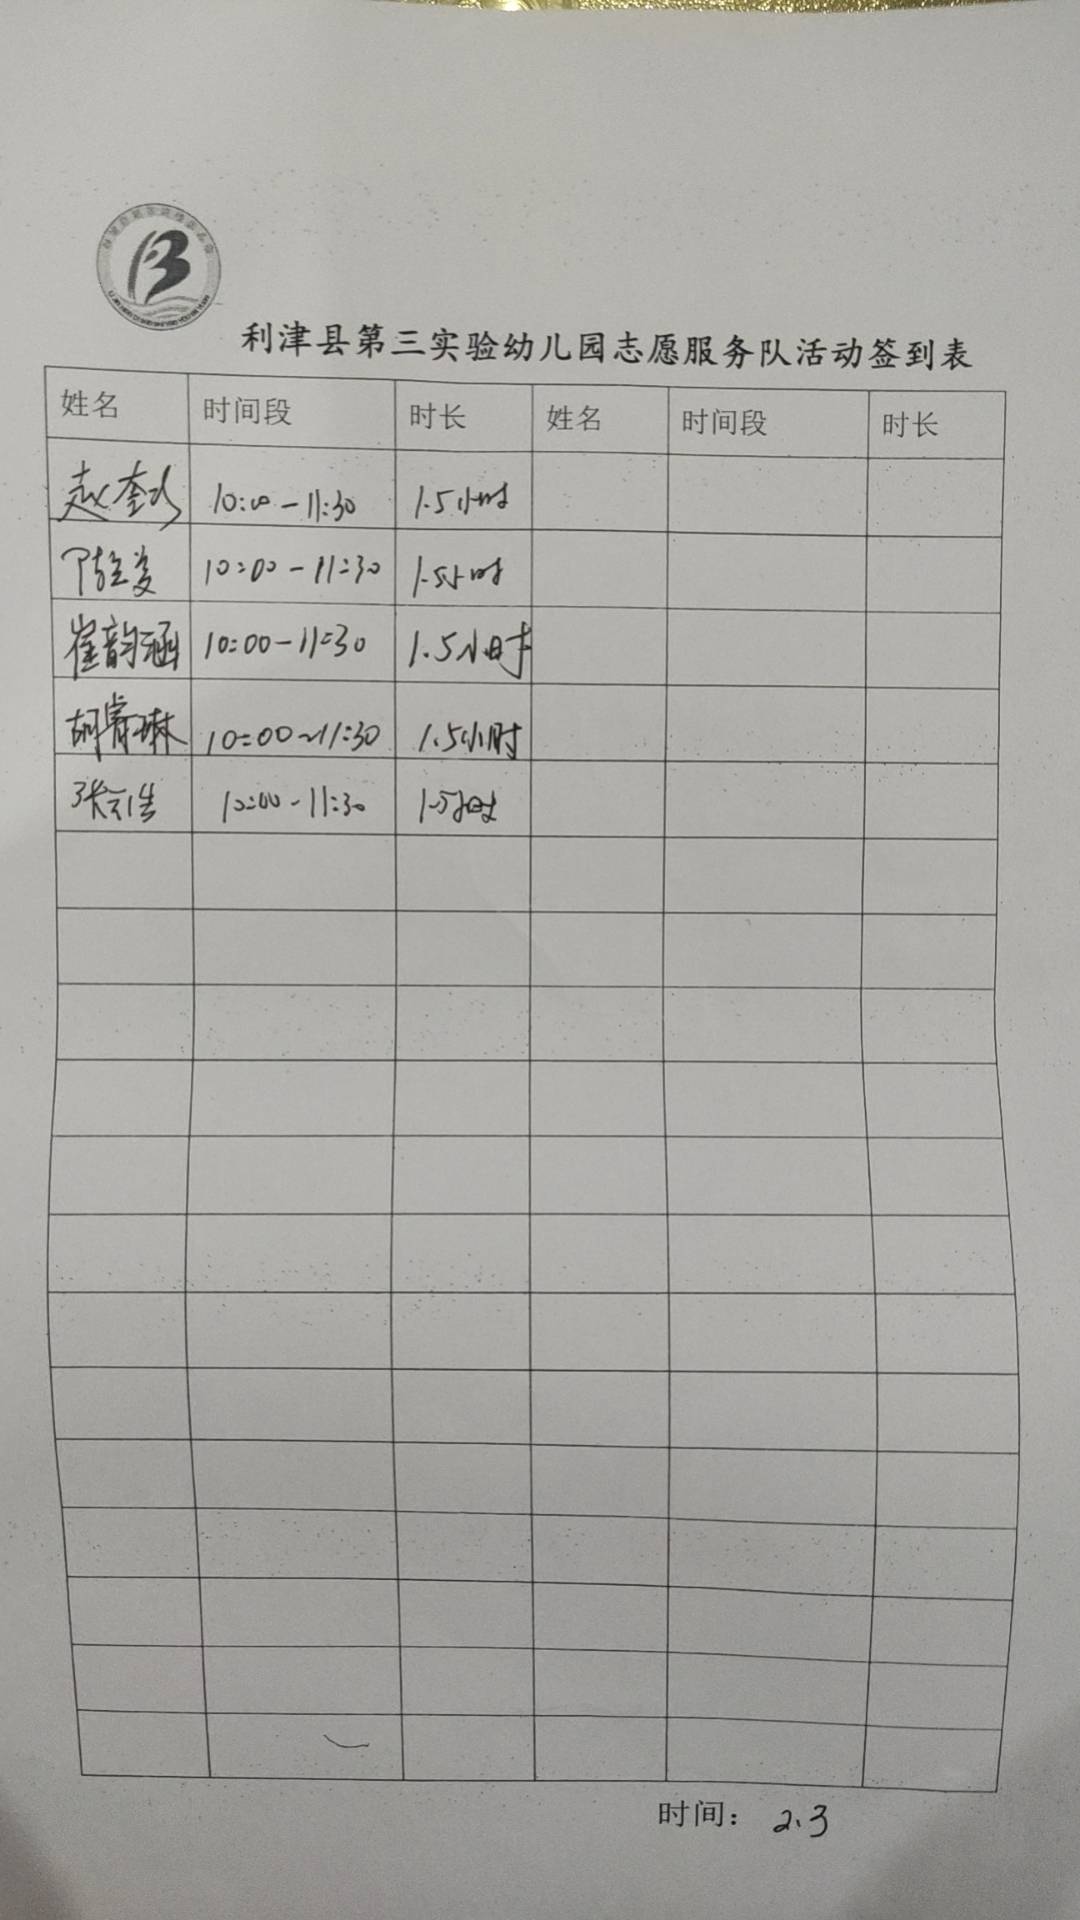 利津县第三实验幼儿园志愿服务队活动签到表
姓名 时间段 时长 姓名 时间段 时长
赵 10:00-11:30 1.5小时
10:00-11:30 1.5小时
崔韵涵 10:00-11:30 1.5小时
胡睿琳 10:00~11:30 1.5小时
张 10:00-11:30 1.5小时
时间: 2.3